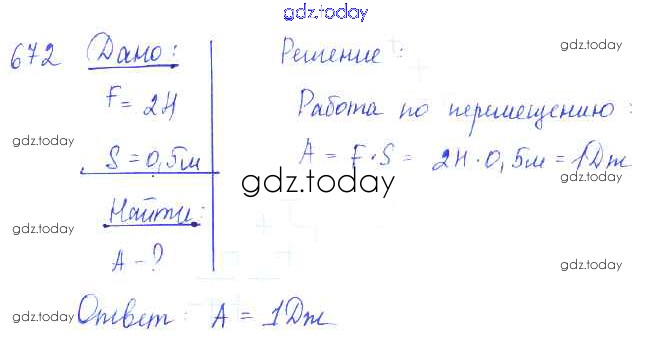 gdz.today
672 Дано: Решение:
gdz.today
F = 2Н
Работа по перемещению:
gdz.today
S = 0,5м
A = F·S = 2Н·0,5м = 1Дж
gdz.today
gdz.today
Найти:
gdz.today
gdz.today
A - ?
gdz.today
Ответ: A = 1Дж
gdz.today
gdz.today